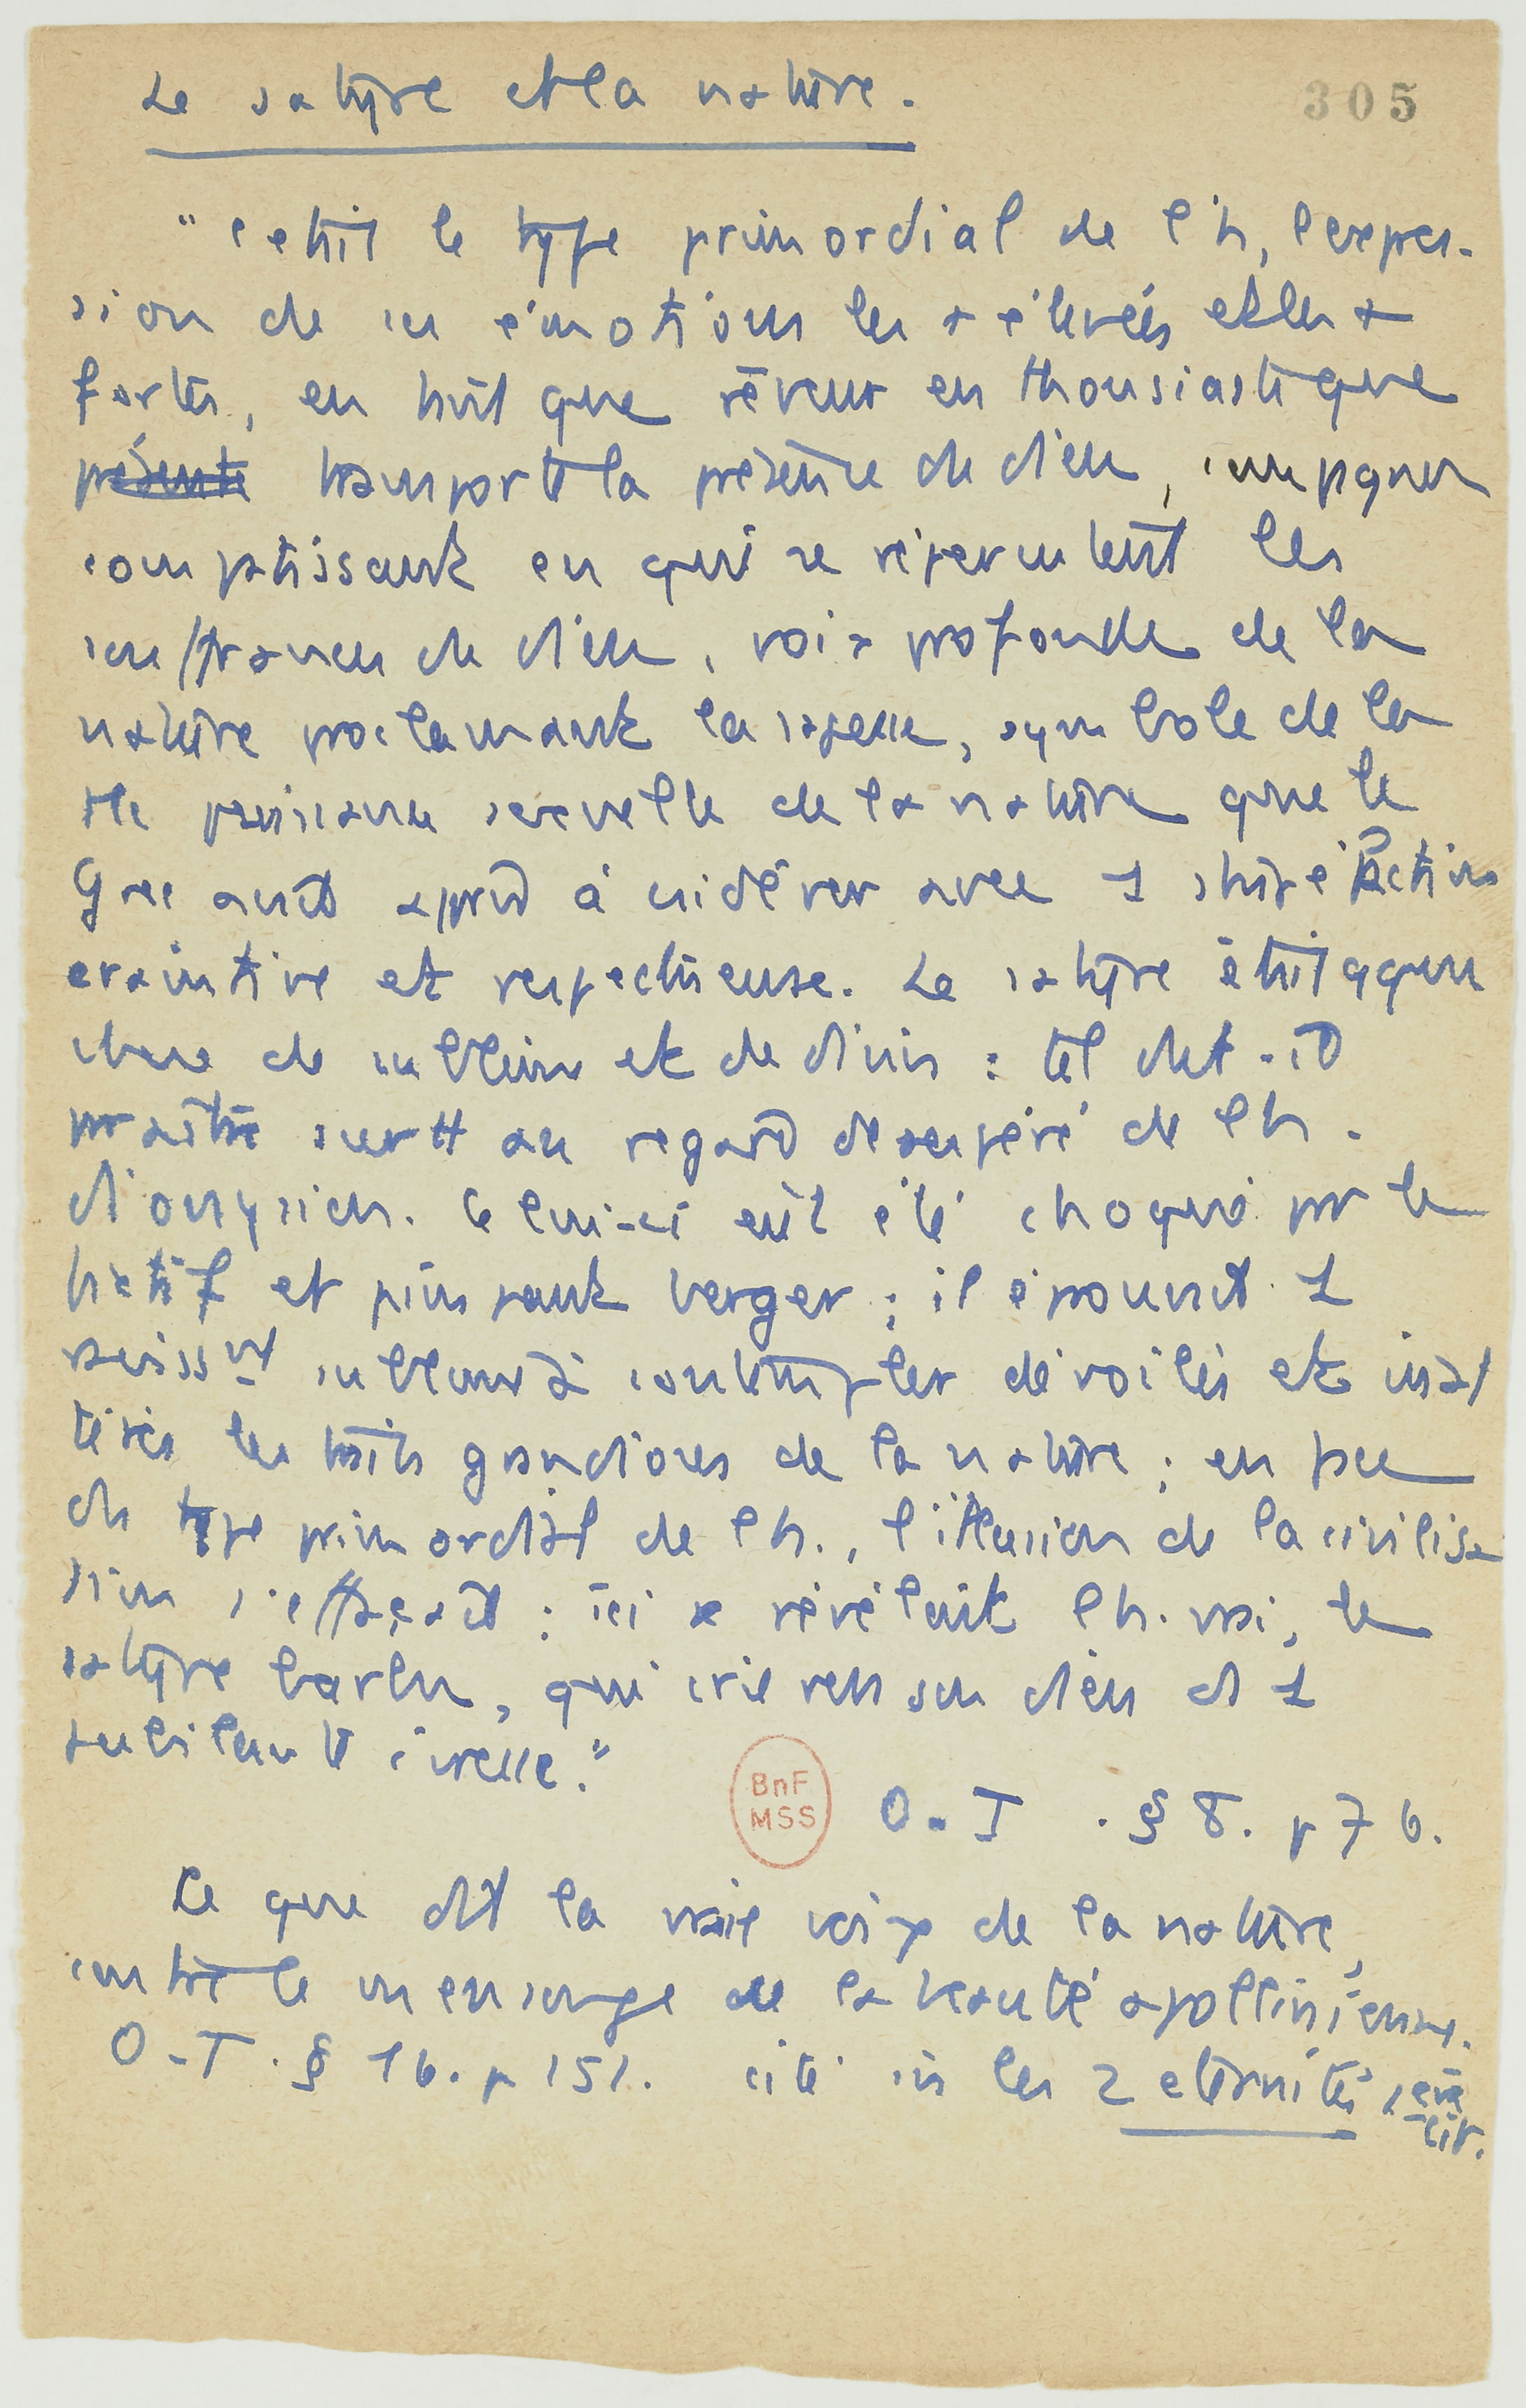 Le satyre et la nature.
305
"c'était le type primordial de l'h, l'expres-
sion de ses émotions les + élevées et les +
fortes, en tant que rêveur enthousiaste que
présente transporte la présence de dieu, compagnon
compatissant en qui se répercutent les
souffrances de dieu, voix profonde de la
nature proclamant la sagesse, symbole de la
tte puissance sexuelle de la nature que le
Grec avait appris à csidérer avec 1 stupéfaction
craintive et respectueuse. Le satyre était qque
chose de sublime et de divin : tel devait-il
paraître surtt au regard désespéré de l'h.
dionysien. Celui-ci eût été choqué par le
factif et pimpant berger ; il éprouvait 1
ravissnt sublime à contempler dévoilés et inal
térés les traits grandioses de la nature ; en face
du type primordial de l'h., l'illusion de la civilisa
tion s'effaçait : ici se révélait l'h. vrai, le
satyre barbu, qui crie vers son dieu ds 1
jubilante ivresse."
BnF
MSS
O.T. § 8. p 76.
Ce que dit la vraie voix de la nature,
contre le mensonge de la beauté apollinienne.
O.T. § 16. p 151. cité in les 2 éternités,